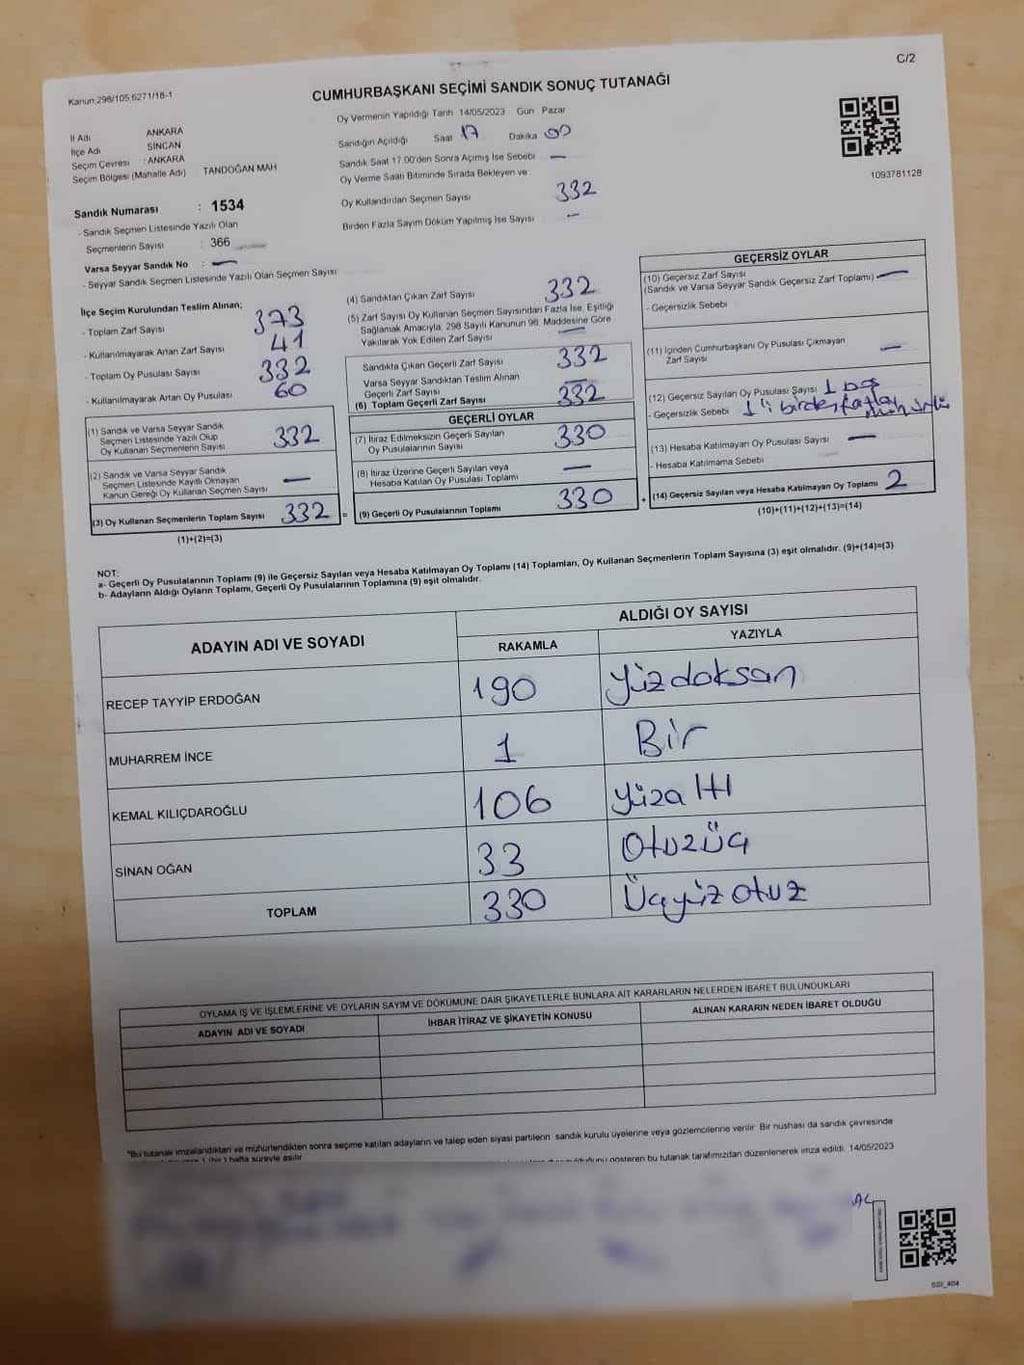 C/2
Kanun:298/105;6271/18-1
CUMHURBAŞKANI SEÇİMİ SANDIK SONUÇ TUTANAĞI
İl Adı ANKARA
İlçe Adı SİNCAN
Seçim Çevresi : ANKARA
Seçim Bölgesi (Mahalle Adı) TANDOĞAN MAH
Sandık Numarası : 1534
- Sandık Seçmen Listesinde Yazılı Olan
Seçmenlerin Sayısı : 366
Varsa Seyyar Sandık No : —
- Seyyar Sandık Seçmen Listesinde Yazılı Olan Seçmen Sayısı
Oy Vermenin Yapıldığı Tarih 14/05/2023 Gün Pazar
Sandığın Açıldığı Saat 17 Dakika 00
Sandık Saat 17.00'den Sonra Açılmış İse Sebebi —
Oy Verme Saati Bitiminde Sırada Bekleyen ve
Oy Kullandırılan Seçmen Sayısı 332
Birden Fazla Sayım Döküm Yapılmış İse Sayısı —
1093781128
İlçe Seçim Kurulundan Teslim Alınan;
- Toplam Zarf Sayısı 373
- Kullanılmayarak Artan Zarf Sayısı 41
- Toplam Oy Pusulası Sayısı 332
- Kullanılmayarak Artan Oy Pusulası 60
(1) Sandık ve Varsa Seyyar Sandık
Seçmen Listesinde Yazılı Olup
Oy Kullanan Seçmenlerin Sayısı 332
(2) Sandık ve Varsa Seyyar Sandık
Seçmen Listesinde Kayıtlı Olmayan
Kanun Gereği Oy Kullanan Seçmen Sayısı —
(3) Oy Kullanan Seçmenlerin Toplam Sayısı 332
(1)+(2)=(3)
(4) Sandıktan Çıkan Zarf Sayısı 332
(5) Zarf Sayısı Oy Kullanan Seçmen Sayısından Fazla İse, Eşitliği
Sağlamak Amacıyla, 298 Sayılı Kanunun 98. Maddesine Göre
Yakılarak Yok Edilen Zarf Sayısı —
Sandıkta Çıkan Geçerli Zarf Sayısı 332
Varsa Seyyar Sandıktan Teslim Alınan
Geçerli Zarf Sayısı —
(6) Toplam Geçerli Zarf Sayısı 332
GEÇERLİ OYLAR
(7) İtiraz Edilmeksizin Geçerli Sayılan
Oy Pusulalarının Sayısı 330
(8) İtiraz Üzerine Geçerli Sayılan veya
Hesaba Katılan Oy Pusulası Toplamı —
= (9) Geçerli Oy Pusulalarının Toplamı 330
GEÇERSİZ OYLAR
(10) Geçersiz Zarf Sayısı
(Sandık ve Varsa Seyyar Sandık Geçersiz Zarf Toplamı) —
- Geçersizlik Sebebi
(11) İçinden Cumhurbaşkanı Oy Pusulası Çıkmayan
Zarf Sayısı —
(12) Geçersiz Sayılan Oy Pusulası Sayısı 1 boş
- Geçersizlik Sebebi 1'i birden fazla mühürlü
(13) Hesaba Katılmayan Oy Pusulası Sayısı —
- Hesaba Katılmama Sebebi
+ (14) Geçersiz Sayılan veya Hesaba Katılmayan Oy Toplamı 2
(10)+(11)+(12)+(13)=(14)
NOT:
a- Geçerli Oy Pusulalarının Toplamı (9) ile Geçersiz Sayılan veya Hesaba Katılmayan Oy Toplamı (14) Toplamları, Oy Kullanan Seçmenlerin Toplam Sayısına (3) eşit olmalıdır. (9)+(14)=(3)
b- Adayların Aldığı Oyların Toplamı, Geçerli Oy Pusulalarının Toplamına (9) eşit olmalıdır.
ADAYIN ADI VE SOYADI ALDIĞI OY SAYISI
RAKAMLA YAZIYLA
RECEP TAYYİP ERDOĞAN 190 Yüzdoksan
MUHARREM İNCE 1 Bir
KEMAL KILIÇDAROĞLU 106 Yüzaltı
SİNAN OĞAN 33 Otuzüç
TOPLAM 330 Üçyüzotuz
OYLAMA İŞ VE İŞLEMLERİNE VE OYLARIN SAYIM VE DÖKÜMÜNE DAİR ŞİKAYETLERLE BUNLARA AİT KARARLARIN NELERDEN İBARET BULUNDUKLARI
ADAYIN ADI VE SOYADI İHBAR İTİRAZ VE ŞİKAYETİN KONUSU ALINAN KARARIN NEDEN İBARET OLDUĞU
"Bu tutanak imzalandıktan ve mühürlendikten sonra seçime katılan adayların ve talep eden siyasi partilerin sandık kurulu üyelerine veya gözlemcilerine verilir. Bir nüshası da sandık çevresinde
1 (bir) hafta süreyle asılır. gösteren bu tutanak tarafımızdan düzenlenerek imza edildi. 14/05/2023